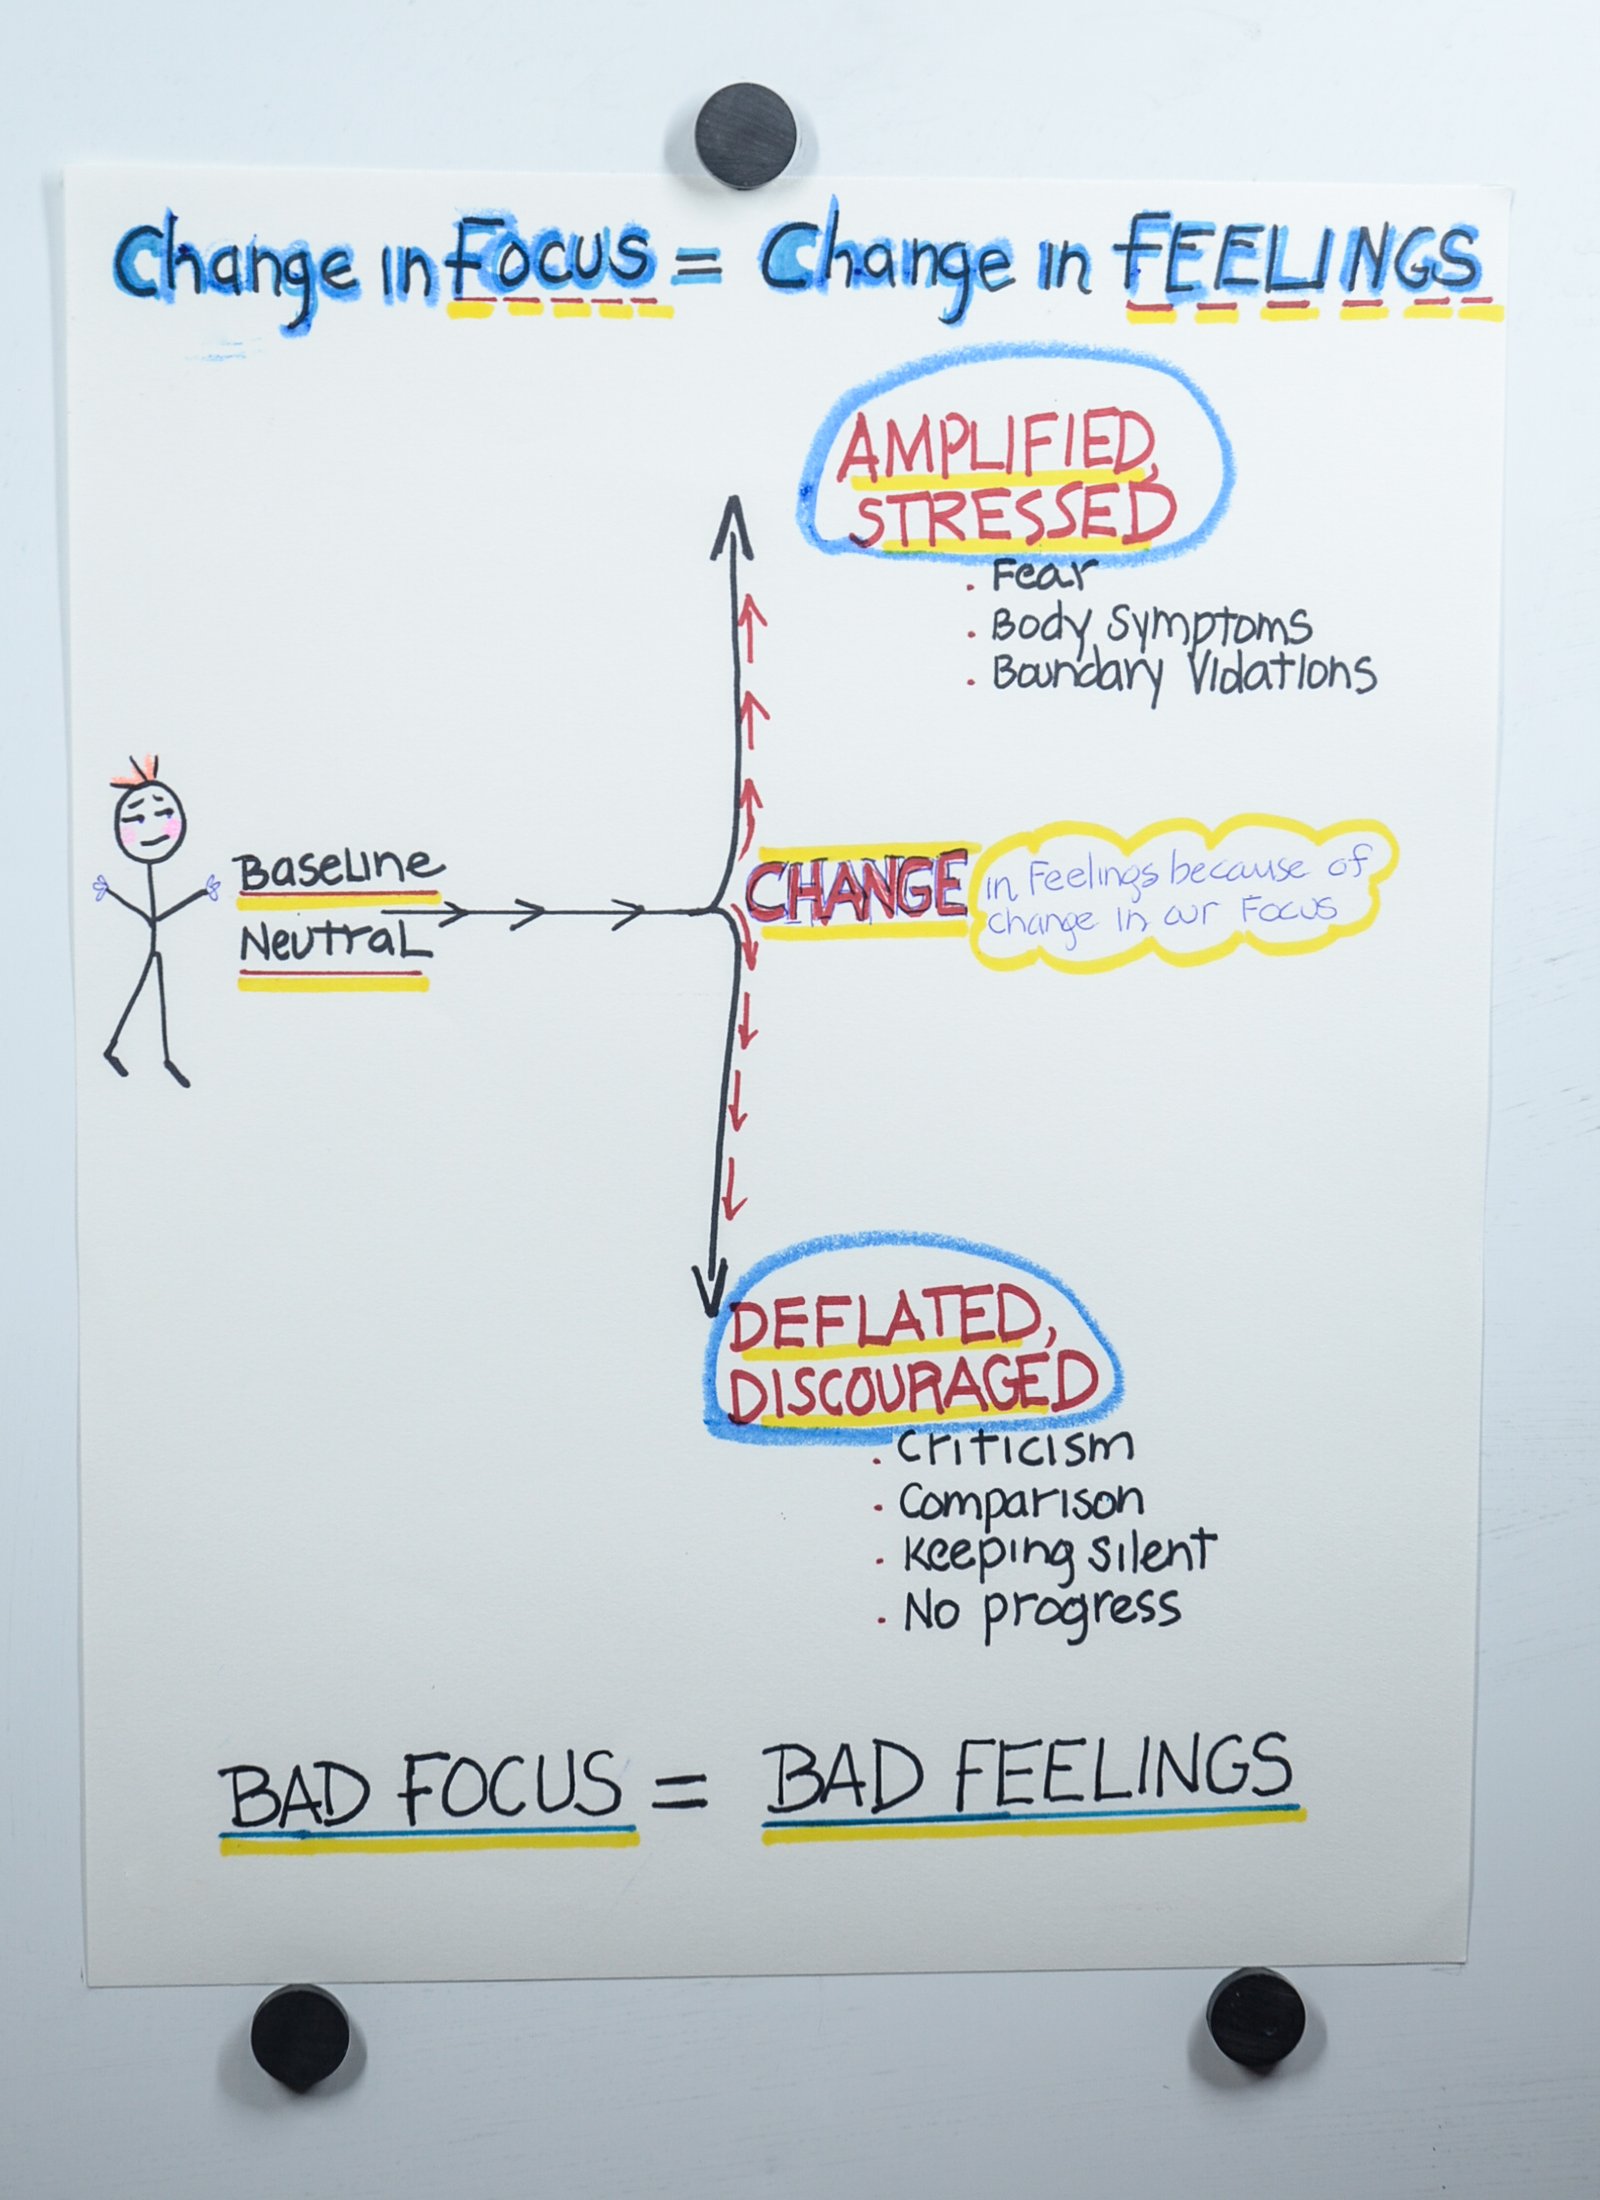 Change in FOCUS = Change in FEELINGS
AMPLIFIED,
STRESSED
. Fear
. Body Symptoms
. Boundary Violations
Baseline
Neutral
CHANGE
in Feelings because of
change in our Focus
DEFLATED,
DISCOURAGED
. Criticism
. Comparison
. Keeping silent
. No progress
BAD FOCUS = BAD FEELINGS